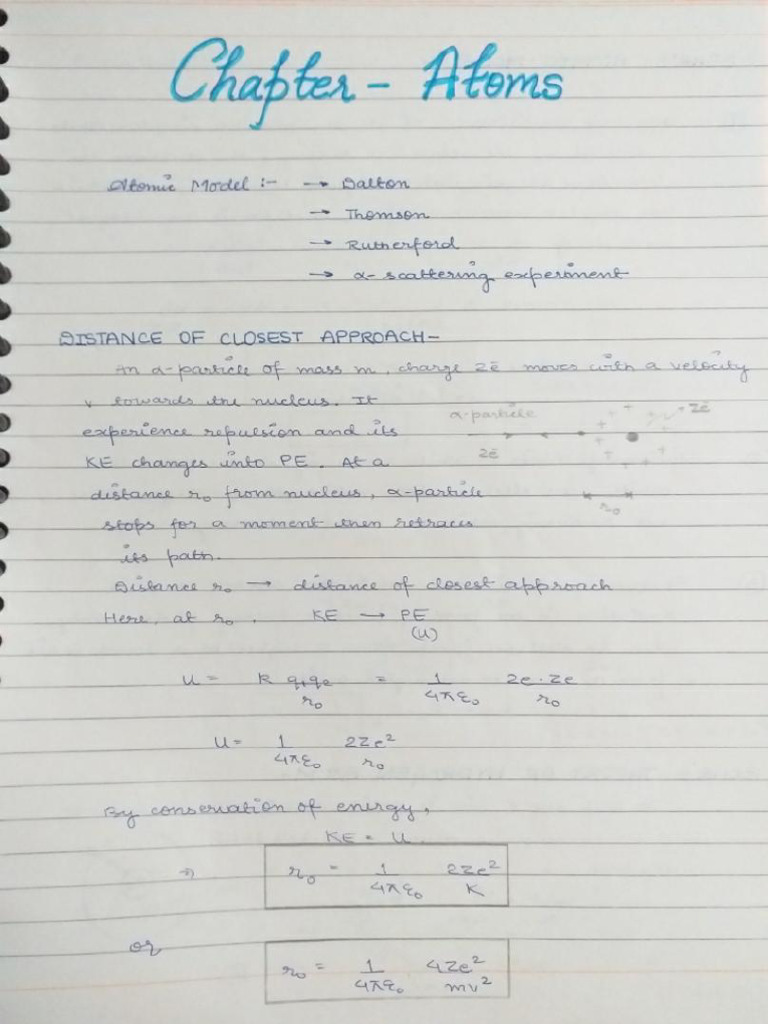 Chapter - Atoms
Atomic Model :- → Dalton
→ Thomson
→ Rutherford
→ α- scattering experiment
DISTANCE OF CLOSEST APPROACH-
An α-particle of mass m, charge 2ē moves with a velocity
v towards the nucleus. It
experience repulsion and its
KE changes into PE. At a
distance r₀ from nucleus, α-particle
stops for a moment then retraces
its path.
α-particle
Zē
2ē
r₀
Distance r₀ → distance of closest approach
Here, at r₀, KE → PE
(U)
U = k q₁q₂/r₀ = 1/4πε₀ 2e·Ze/r₀
U = 1/4πε₀ 2Ze²/r₀
By conservation of energy,
KE = U
⇒ r₀ = 1/4πε₀ 2Ze²/K
or r₀ = 1/4πε₀ 4Ze²/mv²